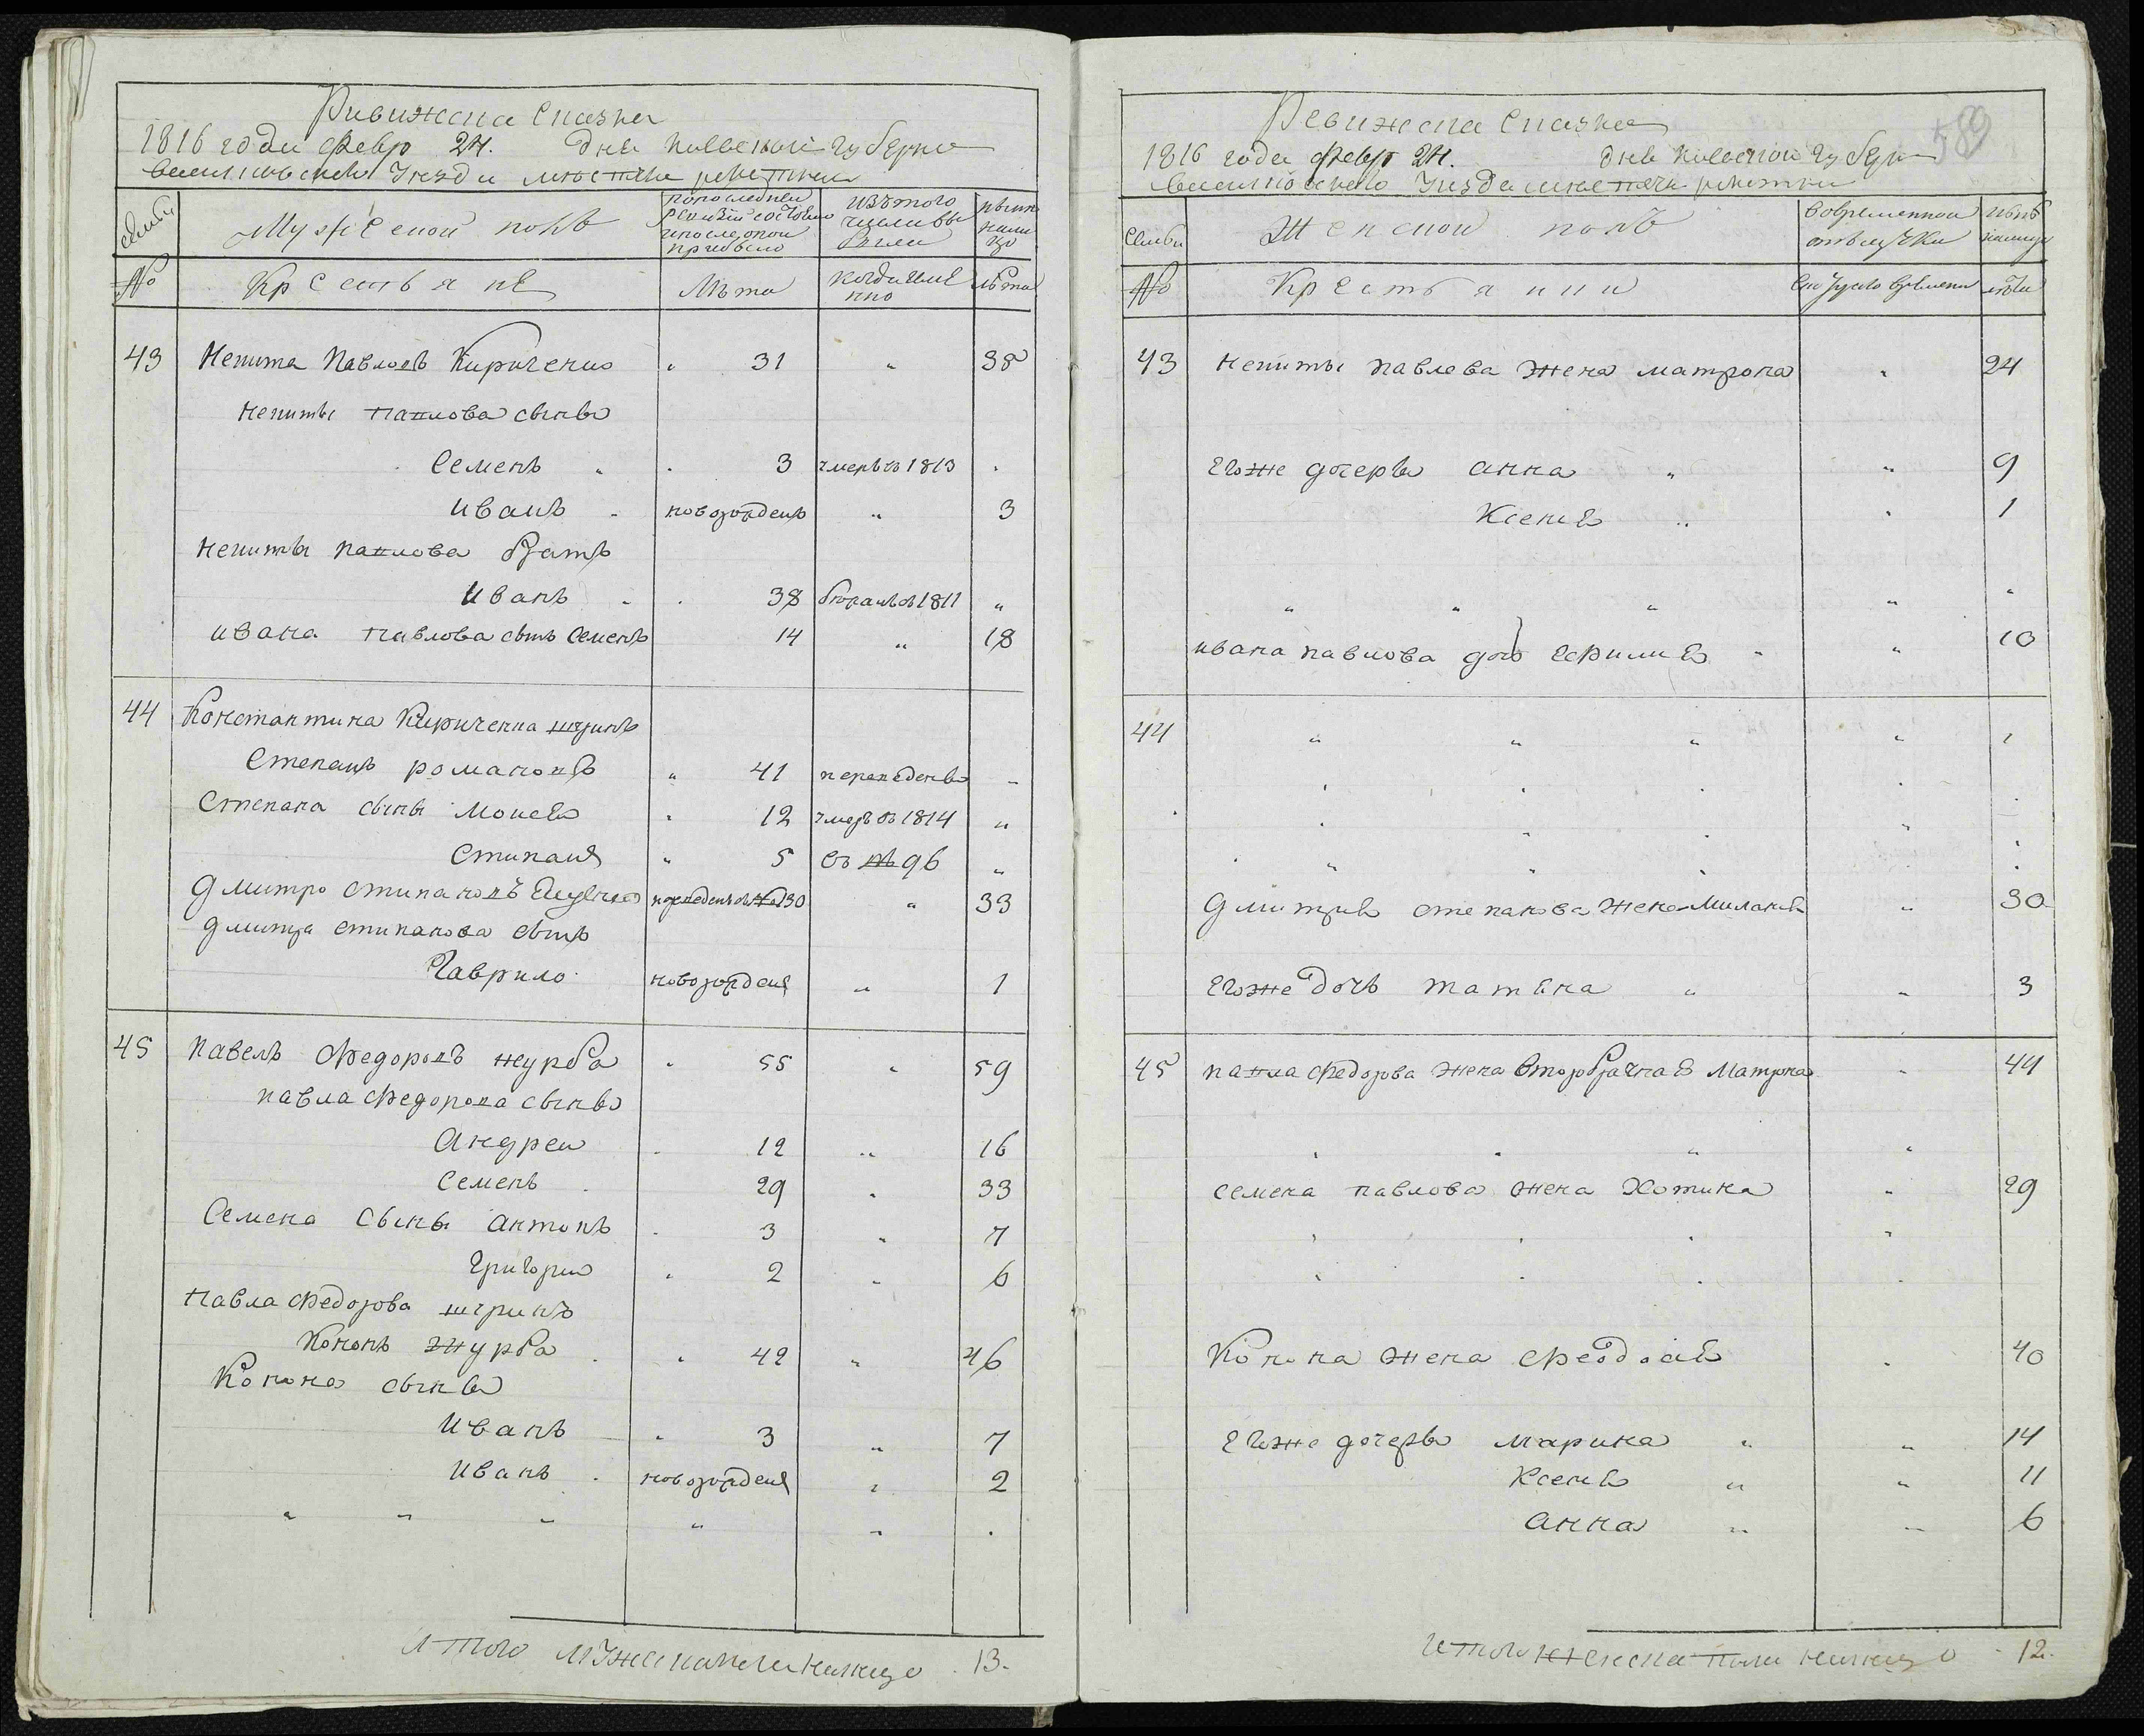 Ривижска Сказка
1816 года Февр 24. дня Киевской губерни
васильковского Уезда местечка
семьи
Мужеской полъ
по последней ревизии состояло и после оной прибыло
изътого числа выбыли
ныне на лицо
№
Крестьяне
Лѣта
когда имянно
лѣта
43 Никита Павловъ Кириченко " 31 " 38
Никиты Павлова сынъ
Семенъ " 3 умеръ въ 1813
Иванъ новорожденъ " 3
Никиты Павлова братъ
Иванъ 38 въ 1811 "
Ивана Павлова сынъ Семенъ 14 " 18
44 Константина Кириченка шуринъ
Степанъ романовъ " 41 переведенъ "
Степана сыны Моисей 12 умеръ въ 1814 "
Степанъ " 5 въ № 96 "
Дмитро степановъ переведенъ въ 30 " 33
Дмитра степанова сынъ
Гаврило новорожденъ " 1
45 Павелъ Федоровъ журба " 55 " 59
павла Федорова сынъ
Андреи 12 " 16
Семенъ 29 " 33
Семена сыны Антонъ 3 " 7
Григории 2 " 6
Павла Федорова шуринъ
Кононъ журба 42 " 46
Конона сынъ
Иванъ 3 " 7
Иванъ новорожденъ " 2
" " " " "
Итого мужеска пола налицо 13.
589
Ревижска Сказка
1816 года Февр 24. дня Киевской губерн
васильковского Уезда местечка
Семьи
Женской полъ
во временной отълучки
ныне налицо
№
Крестьянки
лѣта
43 Никиты Павлова Жена матрона " 24
Егоже дочеръ анна " " 9
Ксения " " 1
" " " " "
ивана павлова доч " " 10
44 " " " " "
Дмитрия степанова Жена Миланія " 30
Егоже дочъ татяна " " 3
45 павла Федорова жена второбрачная Матрона " 44
" " " "
семена павлова жена Хотина " 29
Конона жена Феодосія 40
Егоже дочеръ марина " " 14
Ксения " " 11
анна " " 6
Итого женска пола налицо 12.